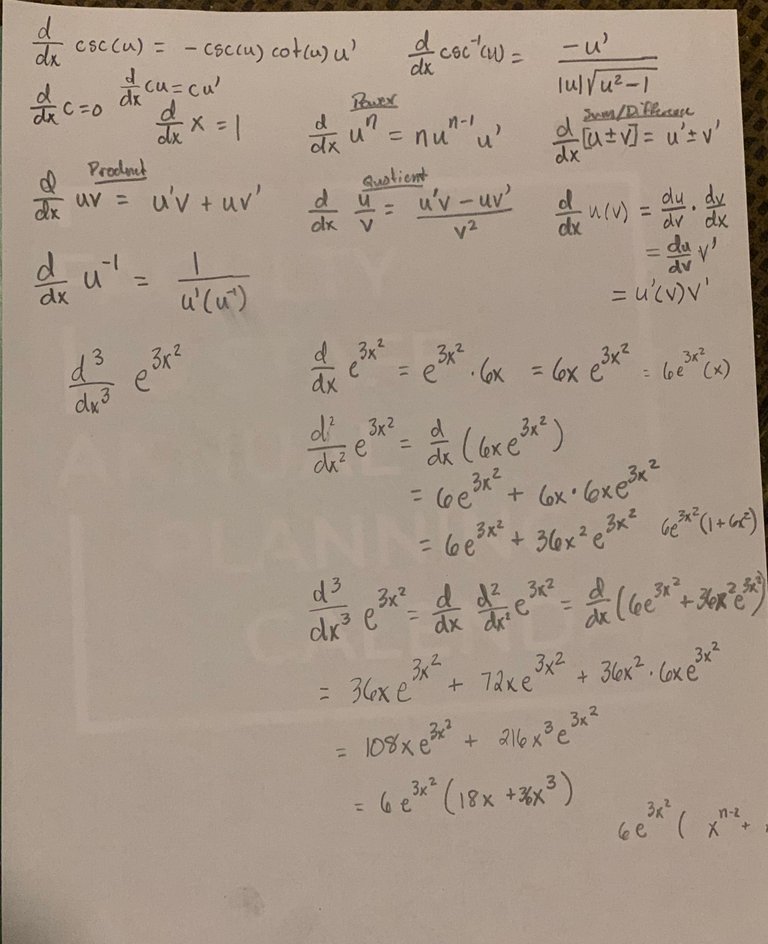 d/dx csc(u) = -csc(u) cot(u) u'   d/dx csc⁻¹(u) = -u' / |u|√(u²-1)
d/dx c = 0   d/dx cu = cu'
d/dx x = 1   Power d/dx uⁿ = nuⁿ⁻¹ u'   Sum/Difference d/dx [u ± v] = u' ± v'
Product d/dx uv = u'v + uv'   Quotient d/dx u/v = (u'v - uv') / v²   d/dx u(v) = du/dv · dv/dx
= du/dv v'
d/dx u⁻¹ = 1 / u'(u⁻¹)   = u'(v) v'
d³/dx³ e^(3x²)   d/dx e^(3x²) = e^(3x²) · 6x = 6x e^(3x²) = 6e^(3x²) (x)
d²/dx² e^(3x²) = d/dx (6x e^(3x²))
= 6e^(3x²) + 6x · 6x e^(3x²)
= 6e^(3x²) + 36x² e^(3x²)   6e^(3x²) (1 + 6x²)
d³/dx³ e^(3x²) = d/dx d²/dx² e^(3x²) = d/dx (6e^(3x²) + 36x² e^(3x²))
= 36x e^(3x²) + 72x e^(3x²) + 36x² · 6x e^(3x²)
= 108x e^(3x²) + 216x³ e^(3x²)
= 6e^(3x²) (18x + 36x³)
6e^(3x²) ( xⁿ⁻² +
LANNING
CALEND